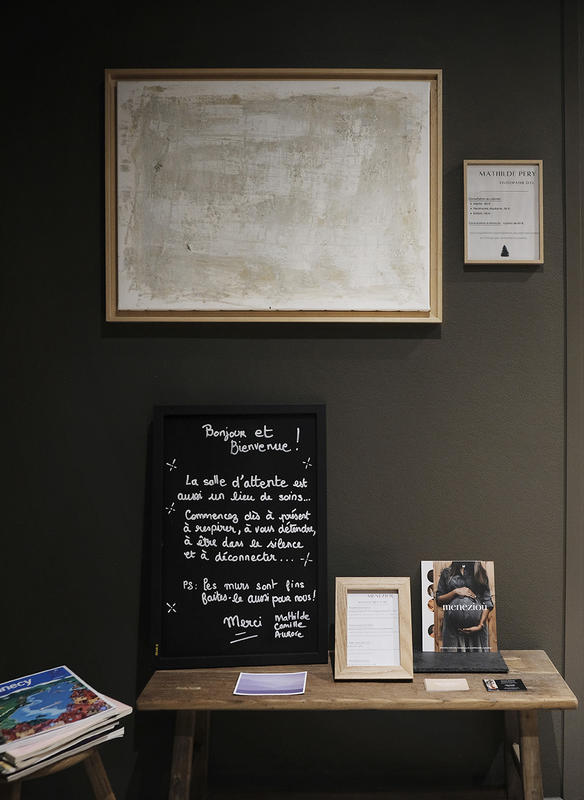 MATHILDE PERY
Bonjour et
Bienvenue !
La salle d'attente est
aussi un lieu de soins...
Commencez dès à présent
à respirer, à vous détendre,
à être dans le silence
et à déconnecter...
PS: les murs sont fins
faites-le aussi pour nous!
Merci
Mathilde
Camille
Aurore
MENEZIOU
meneziou
necy